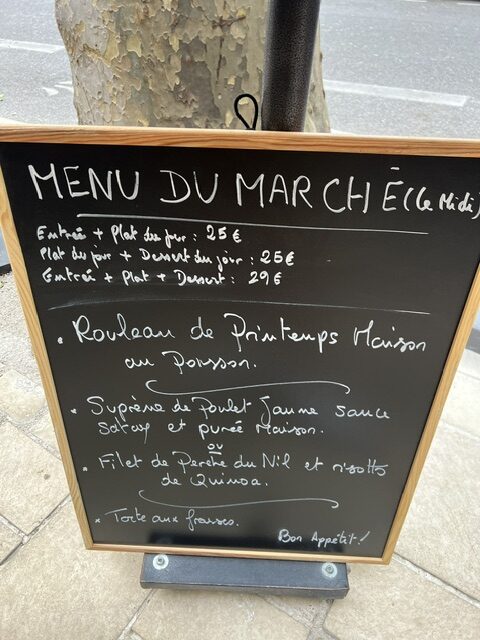 MENU DU MARCHÉ (Le Midi)
Entrée + Plat du jour : 25 €
Plat du jour + Dessert du jour : 25 €
Entrée + Plat + Dessert : 29 €
Rouleau de Printemps Maison
au Poisson.
Suprême de Poulet Jaune sauce
Satay et purée Maison.
ou
Filet de Perche du Nil et risotto
de Quinoa.
Tarte aux fraises.
Bon Appétit !